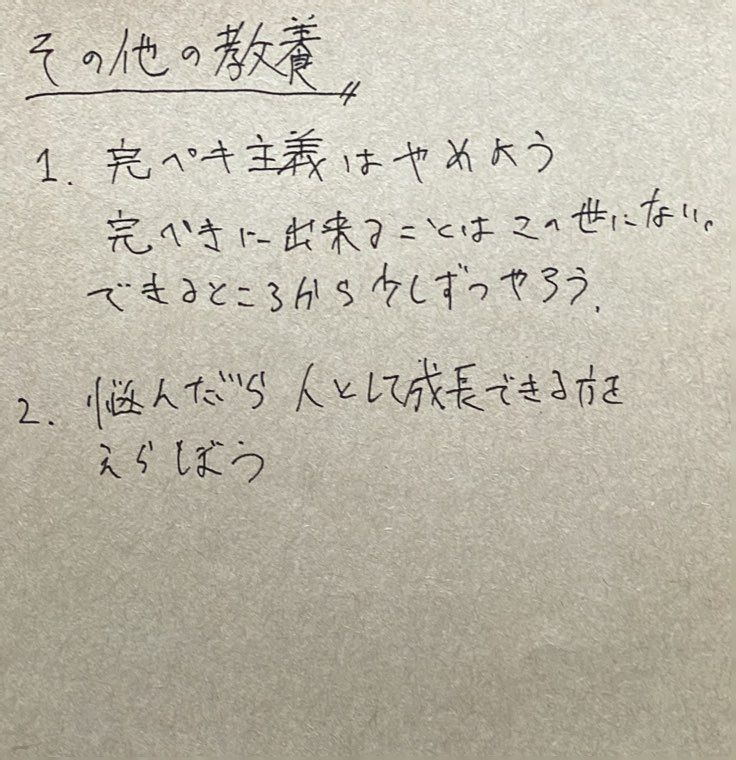 その他の教養
1. 完ペキ主義はやめよう
完ぺきに出来ることはこの世にない。
できるところから少しずつやろう.
2. 悩んだら人として成長できる方を
えらしぼう